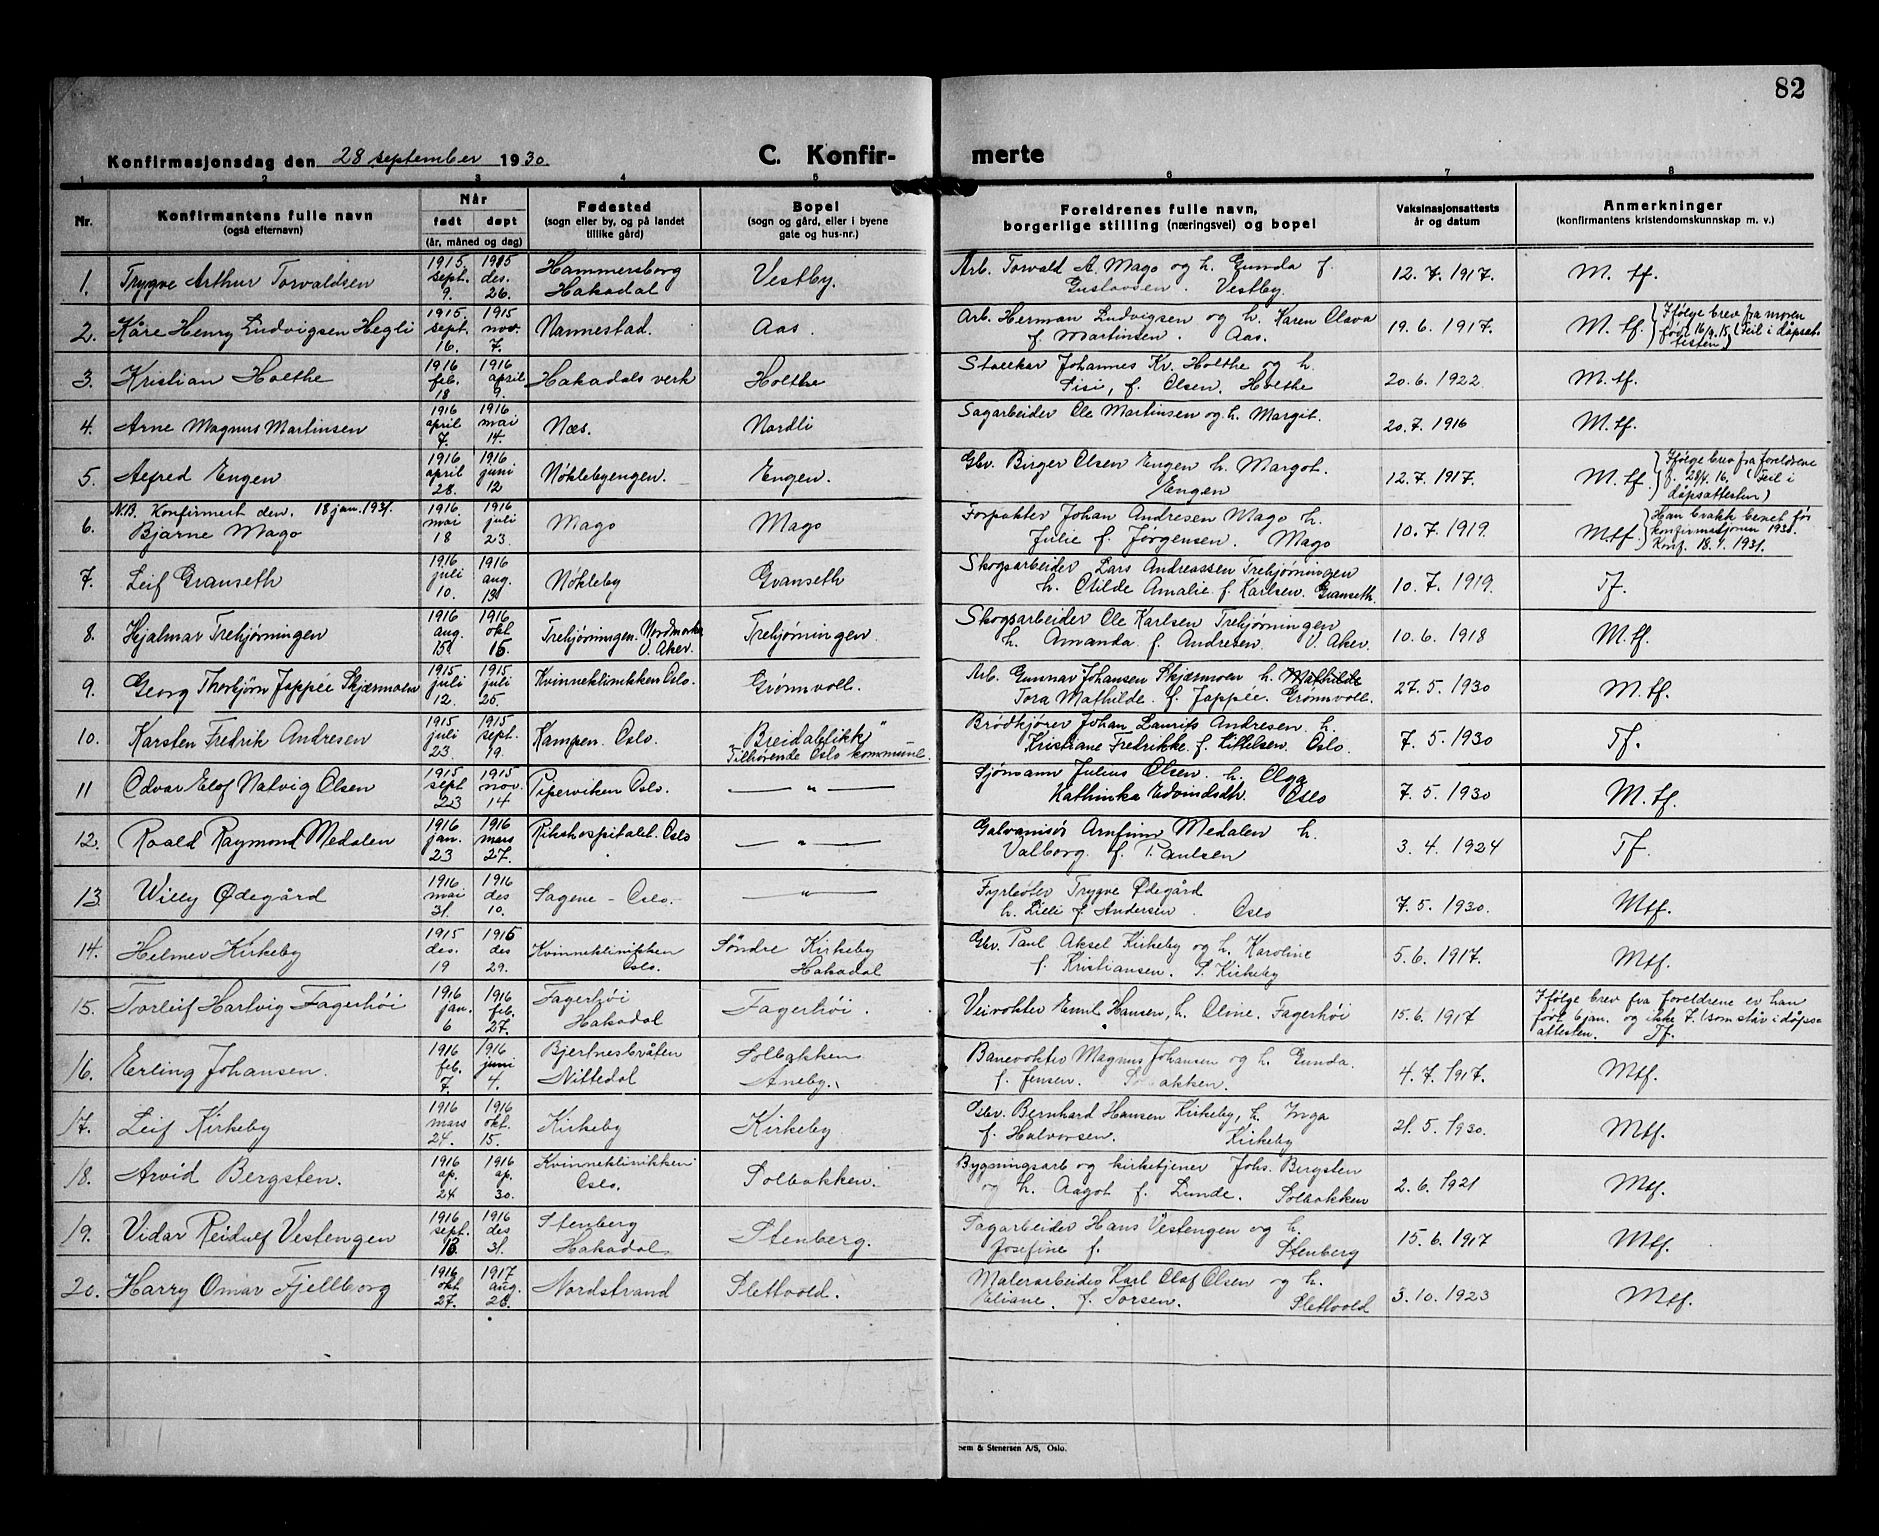 82
Konfirmasjonsdag den 28 september 1930
C. Konfir-
merte
1 2 3 4 5 6 7 8
Nr.
Konfirmantens fulle navn
(også efternavn)
Når
født døpt
(år, måned og dag)
Fødested
(sogn eller by, og på landet
tillike gård)
Bopel
(sogn og gård, eller i byene
gate og hus-nr.)
Foreldrenes fulle navn,
borgerlige stilling (næringsvei) og bopel
Vaksinasjonsattests
år og datum
Anmerkninger
(konfirmantens kristendomskunnskap m. v.)
1. Trygve Arthur Torvaldsen
1915 sept. 9.
1915 des. 26.
Hammersborg
Hakadal
Vestby.
Arb. Torvald A. Mago og h. Gunda f.
Gustavsen. Vestby.
12. 7. 1917.
M. tf.
2. Kåre Henry Ludvigsen Hegli
1915 sept. 16.
1915 nov. 7.
Nannestad.
Aas.
Arb. Herman Ludvigsen og h. Karen Clava
f. Martinsen. Aas.
19. 6. 1917.
M. tf.
Ifølge brev fra moren
født 16/9.15. (Feil i dåpsat-
testen)
3. Kristian Holthe
1916 feb. 18
1916 april 9.
Hakadals verk
Holthe
Johannes Kr. Holthe og h.
Sisi, f. Olsen. Holthe
20. 6. 1922.
M. tf.
4. Arne Magnus Martinsen
1916 april 7.
1916 mai 14.
Næs.
Nordli
Sagarbeider Ole Martinsen og h. Margit.
20. 7. 1916
M. tf.
5. Alfred Engen
1916 april 28.
1916 juni 12
Nøklebyengen.
Engen.
Gbr. Birger Olsen Engen h. Margot.
Engen
12. 7. 1917.
M. tf.
Ifølge brev fra foreldrene
f. 28/4. 16. (Feil i
dåpsattesten)
6. N.B. Konfirmert den. 18 jan. 1931.
Bjarne Mago
1916 mai 18
1916 juli 23.
Mago
Mago
Forpakter Johan Andresen Mago h.
Julie f. Jørgensen. Mago
10. 7. 1919.
M. tf.
Han brakk benet før
konfirmasjonen 1930.
Konf. 18. 1. 1931.
7. Leif Granseth
1916 juli 10.
1916 aug. 13
Nøkleby
Granseth
Skogsarbeider Lars Andreassen Trehjørningen
h. Otilde Amalie f. Karlsen. Granseth.
10. 7. 1919.
Tf.
8. Hjalmar Trehjørningen
1916 aug. 15
1916 okt 15.
Trehjørningen. Nordmarka
V. Aker.
Trehjørningen.
Skogsarbeider Ole Karlsen Trehjørningen
h. Amanda f. Andresen. V. Aker.
10. 6. 1918
M. tf.
9. Georg Thorbjørn Jappée Skjærmoen
1915 juli 12.
1915 juli 25.
Kvinneklinikken Oslo.
Grønvoll.
Arb. Gunnar Johansen Skjærmoen h. Mathilde
Tora Mathilde. f. Jappée. Grønvoll.
27. 5. 1930
M. tf.
10. Karsten Fredrik Andresen
1915 juli 23.
1915 sept. 19.
Kampen. Oslo.
Breidablikk"
Tilhørende Oslo kommune.
Brødkjører Johan Laurits Andresen. h.
Kristiane Fredrikke. f. Kittelsen. Oslo.
7. 5. 1930
Tf.
11 Odvar Elof Natvig Olsen
1915 sept 23
1915 nov. 14
Piperviken Oslo.
— " —
Sjømann Julius Olsen. h. Olga
Kathinka Edvindsdtr. Oslo
7. 5. 1930
M. tf.
12. Roald Raymond Medalen
1916 jan. 23
1916 mars 27.
Rikshospitalet. Oslo
— " —
Galvanisør Arnfinn Medalen h.
Valborg. f. Paulsen
3. 4. 1924
Tf.
13 Willy Ødegård
1916 mai 31.
1916 des 10.
Sagene - Oslo.
— " —
Fyrbøter Trygve Ødegård
h. Lilli f. Andersen. Oslo
7. 5. 1930.
Mtf.
14. Helmer Kirkeby
1915 des. 19
1915 des 29.
Kvinneklinikken
Oslo.
Søndre Kirkeby
Hakadal
Gbr. Paul Aksel Kirkeby og h. Karoline
f. Kristiansen. S. Kirkeby
5. 6. 1917.
Mtf.
15. Torleif Hartvig Fagerhøi
1916 jan. 6
1916 feb. 27.
Fagerhøi
Hakadal
Fagerhøi.
Veivokter Emil Hansen, h. Oline. Fagerhøi
15. 6. 1917
Ifølge brev fra foreldrene er han
født 6 jan. og ikke 7. (som står i dåps-
attesten. Tf.
16. Erling Johansen.
1916 feb. 7.
1916 juni 4.
Bjertnesbråten
Nittedal
Solbakken
Aneby.
Banevokter Magnus Johansen og h. Gunda.
f. Jensen. Solbakken.
4. 7. 1917.
Mtf.
17. Leif Kirkeby
1916 mars 24.
1916 okt. 15.
Kirkeby
Kirkeby
Gbr. Bernhard Hansen Kirkeby, h. Inga
f. Halvorsen. Kirkeby
21. 5. 1930.
Mtf.
18. Arvid Bergsten.
1916 ap. 24
1916 ap. 30.
Kvinneklinikken
Oslo.
Solbakken.
Bygningsarb og kirketjener Johs. Bergsten
og h. Aagot f. Lunde. Solbakken
2. 6. 1921
Mtf.
19. Vidar Reidulf Vestengen
1916 sept. 13.
1916 des 31.
Stenberg
Hakadal
Stenberg.
Sagarbeider Hans Vestengen og h.
Josefine f. Stenberg
15. 6. 1917
Mtf.
20. Harry Omar Fjellborg
1916 okt 27.
1917 aug. 26.
Nordstrand
Slettvold.
Malerarbeider Karl Olaf Olsen og h.
Eliane. f. Torsen. Slettvold
3. 10. 1923
Mtf.
sem & Stenersen A/S, Oslo.